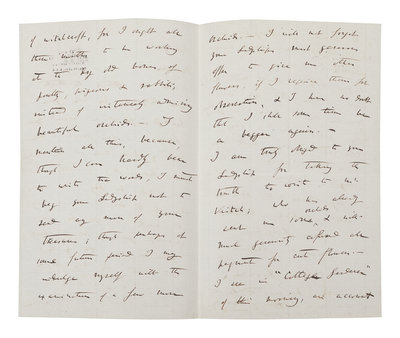 of witchcraft, for I ought all
these months to be working
at the dry old bones of
poultry, pigeons & rabbits,
instead of intensely admiring
beautiful orchids. — I
mention all this, because,
though I can hardly bear
to write the words, I must
beg your Ladyship not to
send any more of your
treasures; though perhaps at
some future period I may
indulge myself with the
examination of a few more
Orchids. — I will not forget
your Ladyship's most generous
offer to give me other
flowers, if I require them for
observation, & I have no doubt
that I shall some time be
a beggar again. —
I am truly obliged to your
Ladyship for taking the
trouble to write to Mr
Veitch; who has already
sent me some orchids & with
much generosity refused all
payment for cut flowers. —
I see in "Cottage Gardener"
of this morning, an account